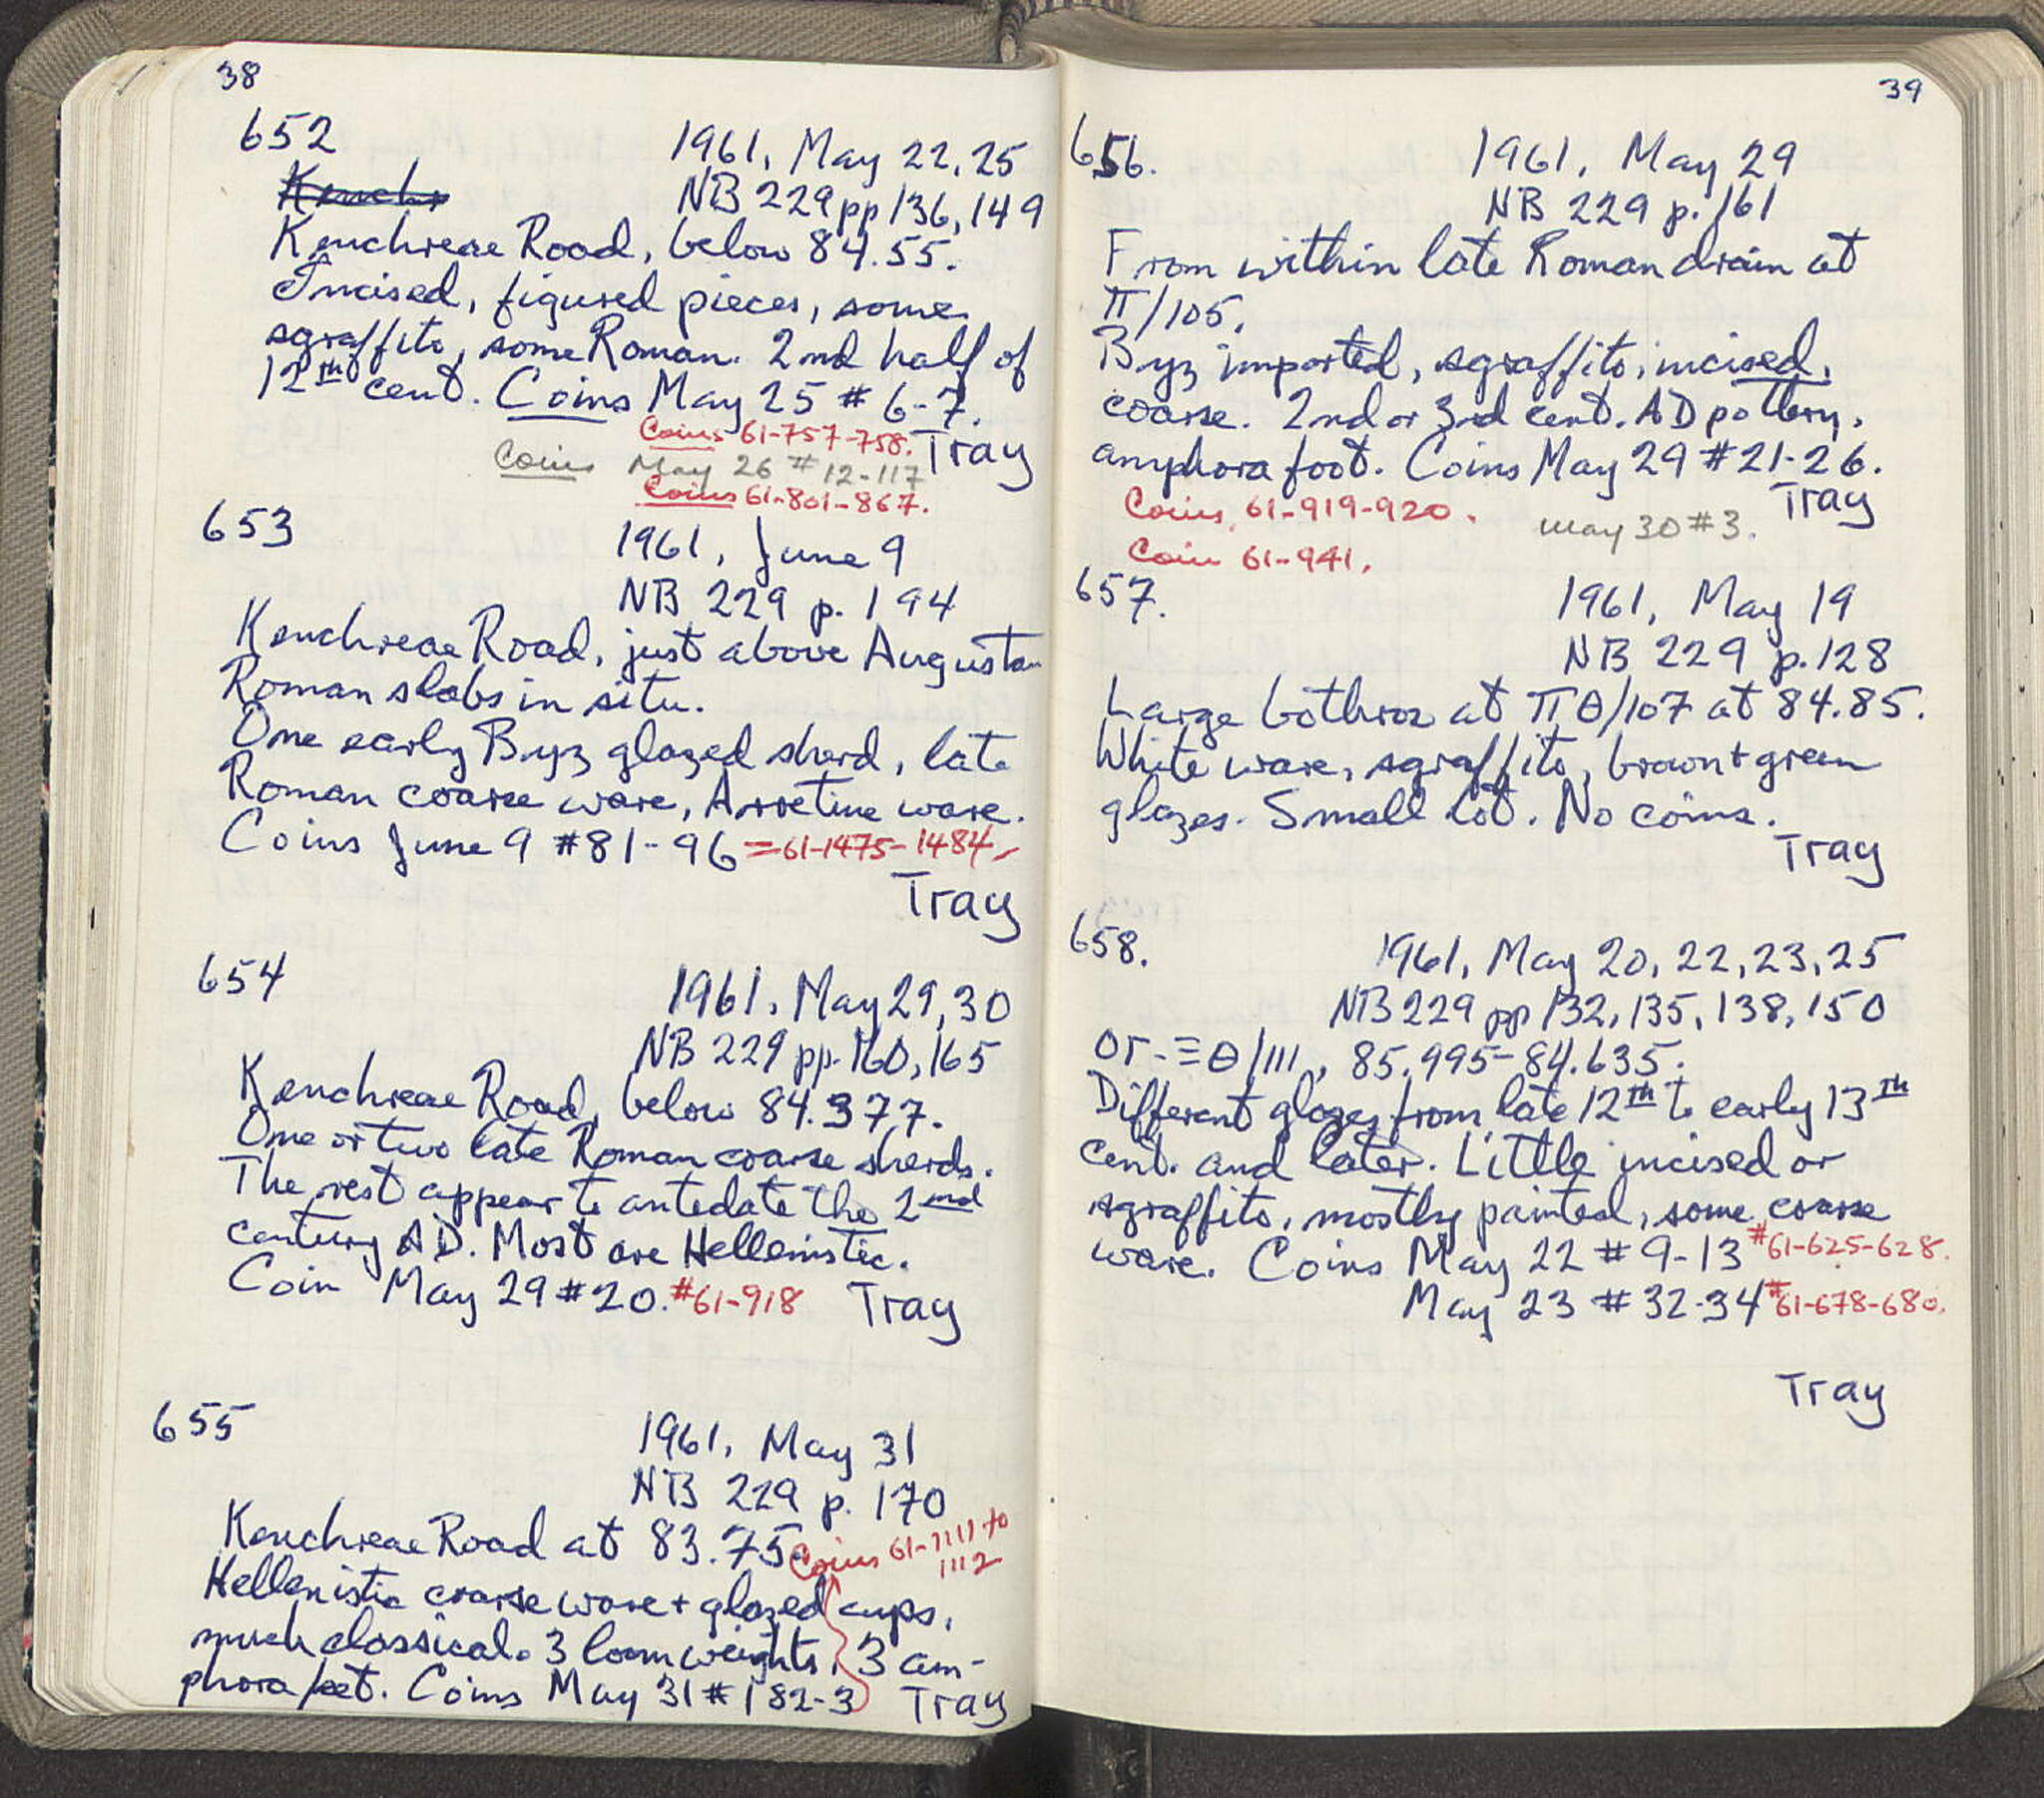 38
652
1961, May 22, 25
Kenchr
NB 229 pp 136, 149
Kenchreae Road, below 84.55.
Incised, figured pieces, some
sgraffito, some Roman. 2nd half of
12th cent. Coins May 25 # 6-7.
Coins 61-757-758. Tray
Coins May 26 # 12-117
Coins 61-801-867.
653
1961, June 9
NB 229 p. 194
Kenchreae Road, just above Augustan
Roman slabs in situ.
One early Byz glazed sherd, late
Roman coarse ware, Arretine ware.
Coins June 9 #81-96 = 61-1475-1484
Tray
654
1961, May 29, 30
NB 229 pp. 160, 165
Kenchreae Road, below 84.377.
One or two late Roman coarse sherds.
The rest appear to antedate the 2nd
century AD. Most are Hellenistic.
Coin May 29 #20. #61-918 Tray
655
1961, May 31
NB 229 p. 170
Kenchreae Road at 83.75
Coins 61-1111 to
1112
Hellenistic coarse ware + glazed cups,
much classical. 3 loomweights, 3 am-
phora feet. Coins May 31 # 182-3 Tray
39
656.
1961, May 29
NB 229 p. 161
From within late Roman drain at
Π/105.
Byz imported, sgraffito, incised,
coarse. 2nd or 3rd cent. AD pottery,
amphora foot. Coins May 29 #21-26.
Tray
Coins, 61-919-920. May 30 #3.
Coin 61-941.
657.
1961, May 19
NB 229 p. 128
Large bothros at ΠΘ/107 at 84.85.
White ware, sgraffito, brown + green
glazes. Small lot. No coins.
Tray
658.
1961, May 20, 22, 23, 25
NB 229 pp 132, 135, 138, 150
Or-ΞΘ/111, 85.995-84.635.
Different glazes from late 12th to early 13th
cent. and later. Little incised or
sgraffito, mostly painted, some coarse
ware. Coins May 22 # 9-13 #61-625-628.
May 23 # 32-34 #61-678-680.
Tray